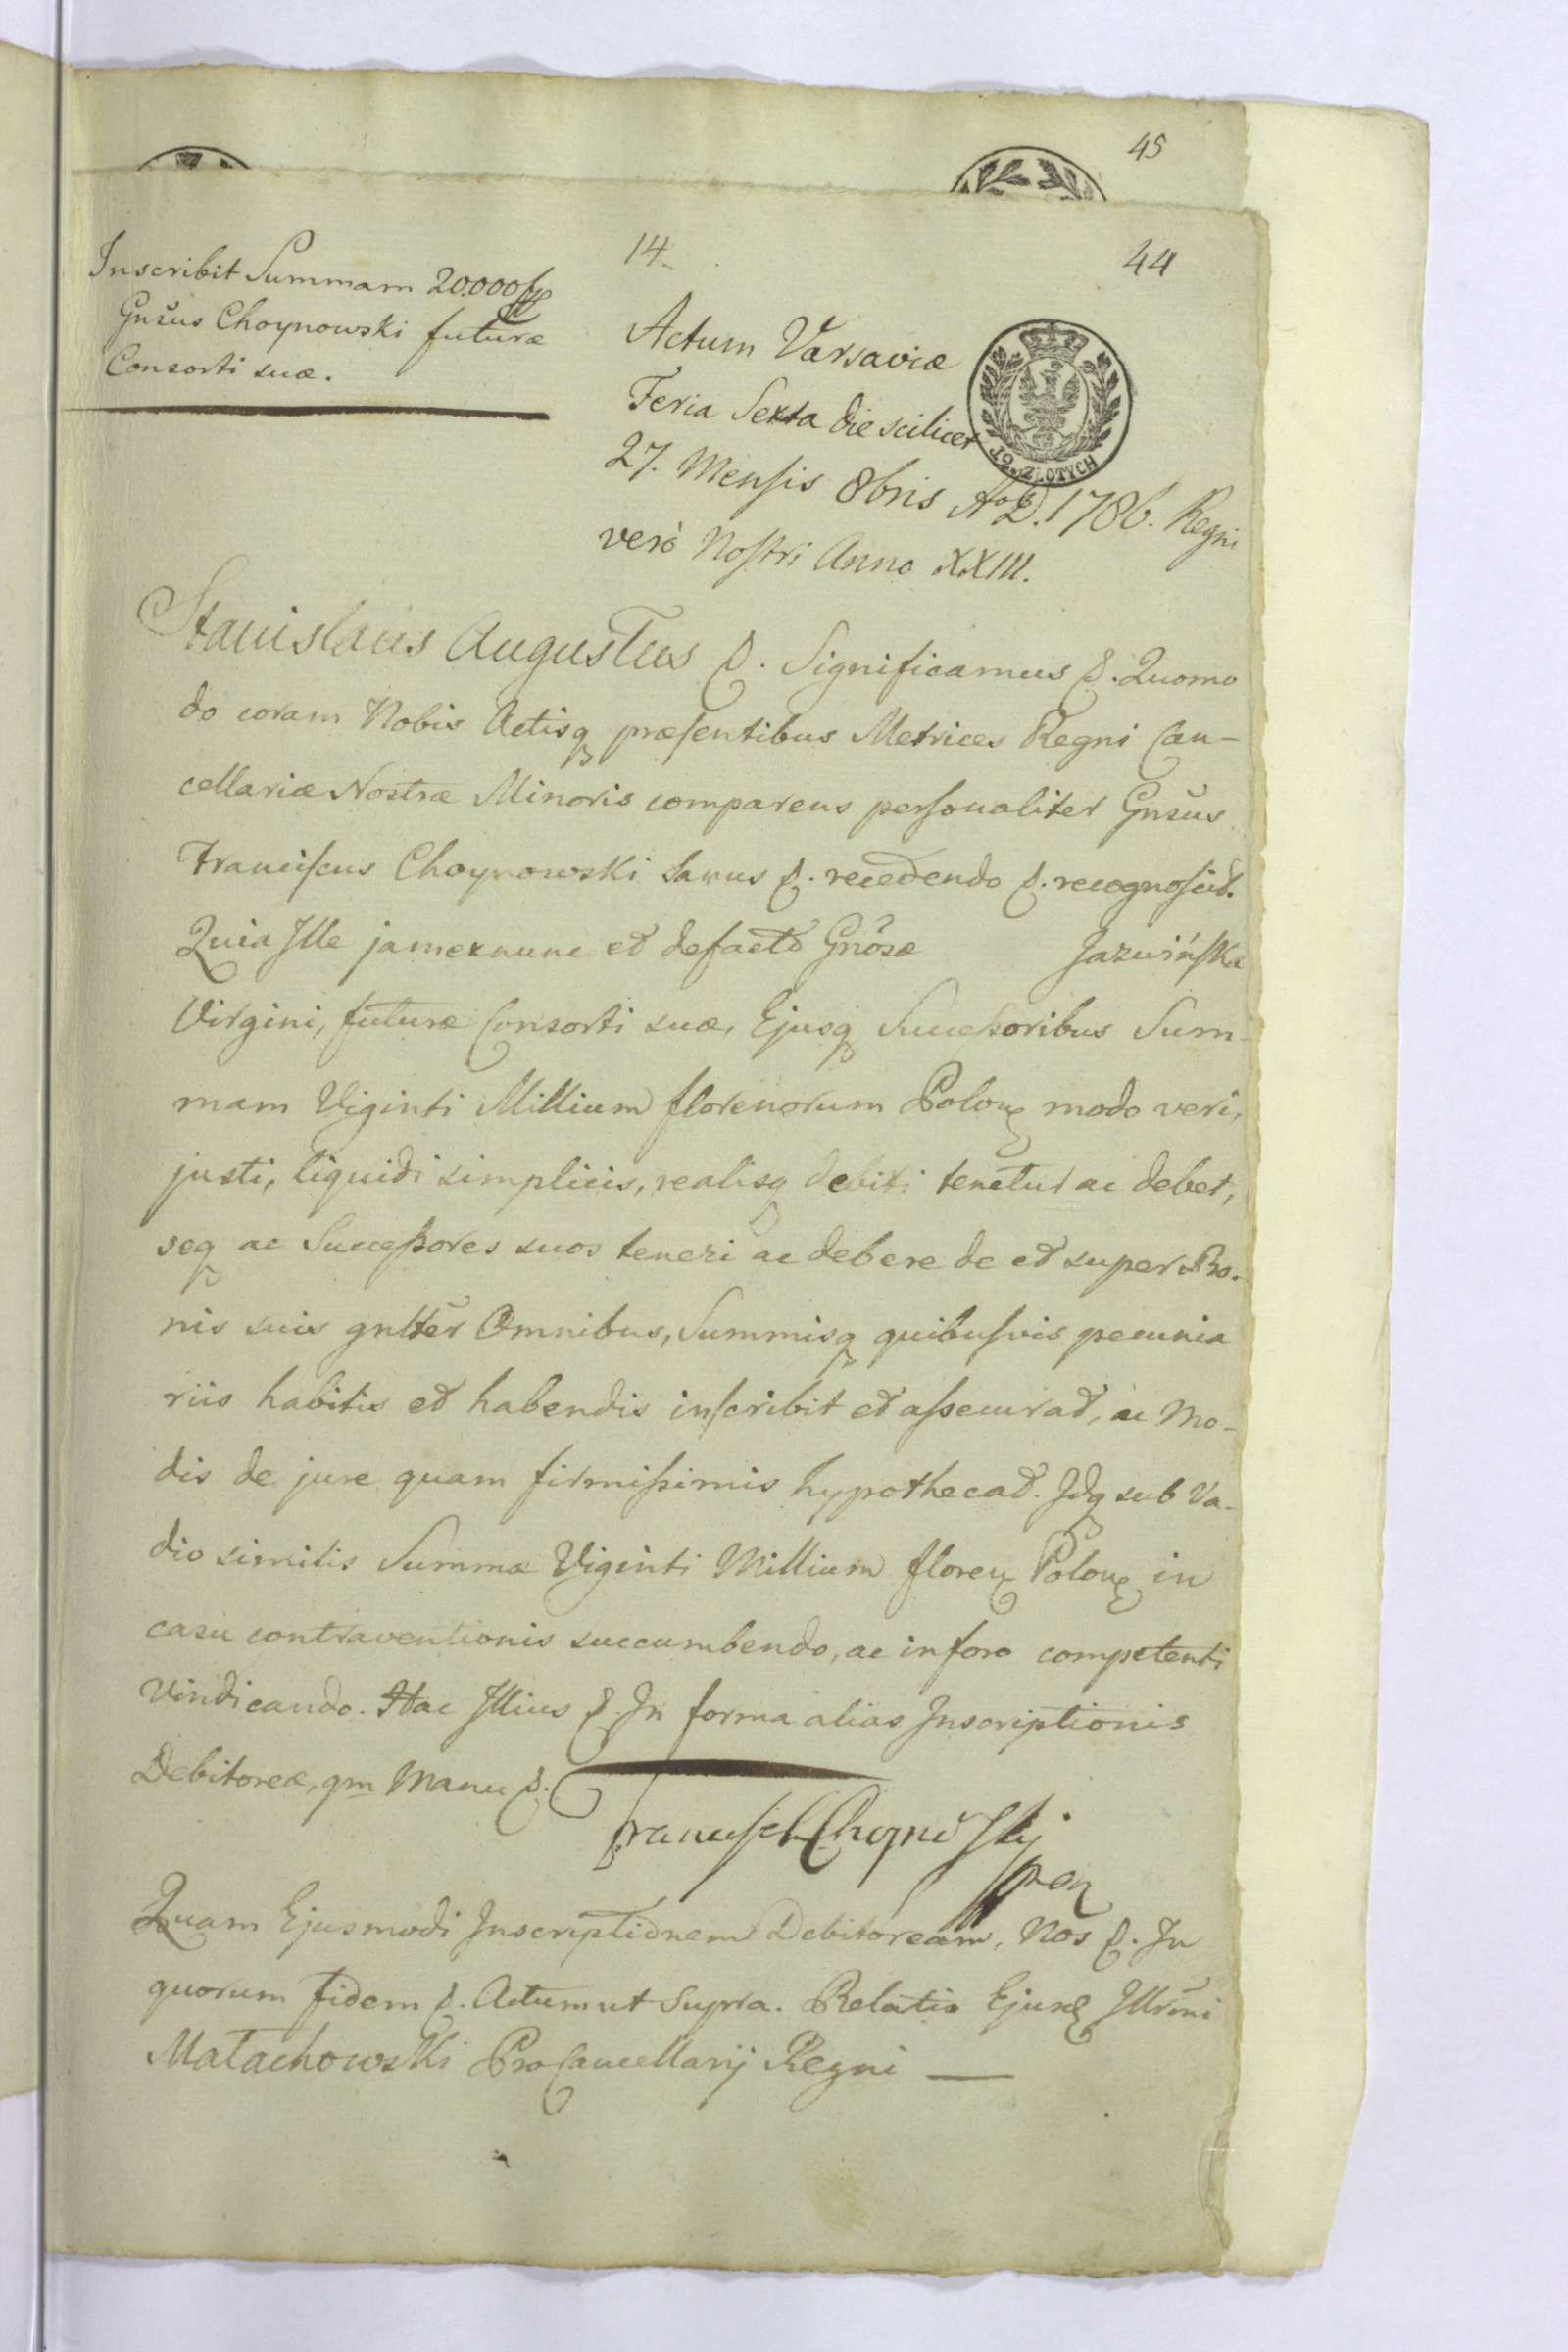 45
14.
44
Inscribit Summam 20.000
Gnsus Choynowski futuræ
Consorti suæ.
Actum Varsaviæ
Feria Sexta die scilicet
ZŁOTYCH
27. Mensis 8bris Aō D. 1786. Regni
verò Nostri Anno XXIII.
Stanislaus Augustus &. Significamus &. Quomo
do coram Nobis Actisq præsentibus Metrices Regni Can-
cellariæ Nostræ Minoris comparens personaliter Gnsus
Franciscus Choynowski sanus &. recedendo &. recognoscit.
Quia Ille jam ex nunc et de facto Gnōsæ Jazwińska
Virgini, futuræ Consorti suæ, Ejusq Successoribus Sum-
mam Viginti Millium florenorum Polon modo veri,
justi, liquidi simplicis, realisq debiti tenetur ac debet,
seq ac Successores suos teneri ac debere de et super Bo-
nis suis gnlter Omnibus, Summisq quibusvis pecunia
riis habitis et habendis inscribit et assecurat, ac Mo-
dis de jure quam firmissimis hypothecat. Idq sub Va-
dio similis Summæ Viginti Millium floren Polon in
casu contraventionis succumbendo, ac in foro competenti
vindicando. Hac Illius &. In forma alias Inscriptionis
Debitoreæ, qm Manu &.
Quam Ejusmodi Inscriptionem Debitoream, Nos &. In
quorum fidem &. Actum ut Supra. Relatio Ejusd Illrmi
Małachowski ProCancellarij Regni —